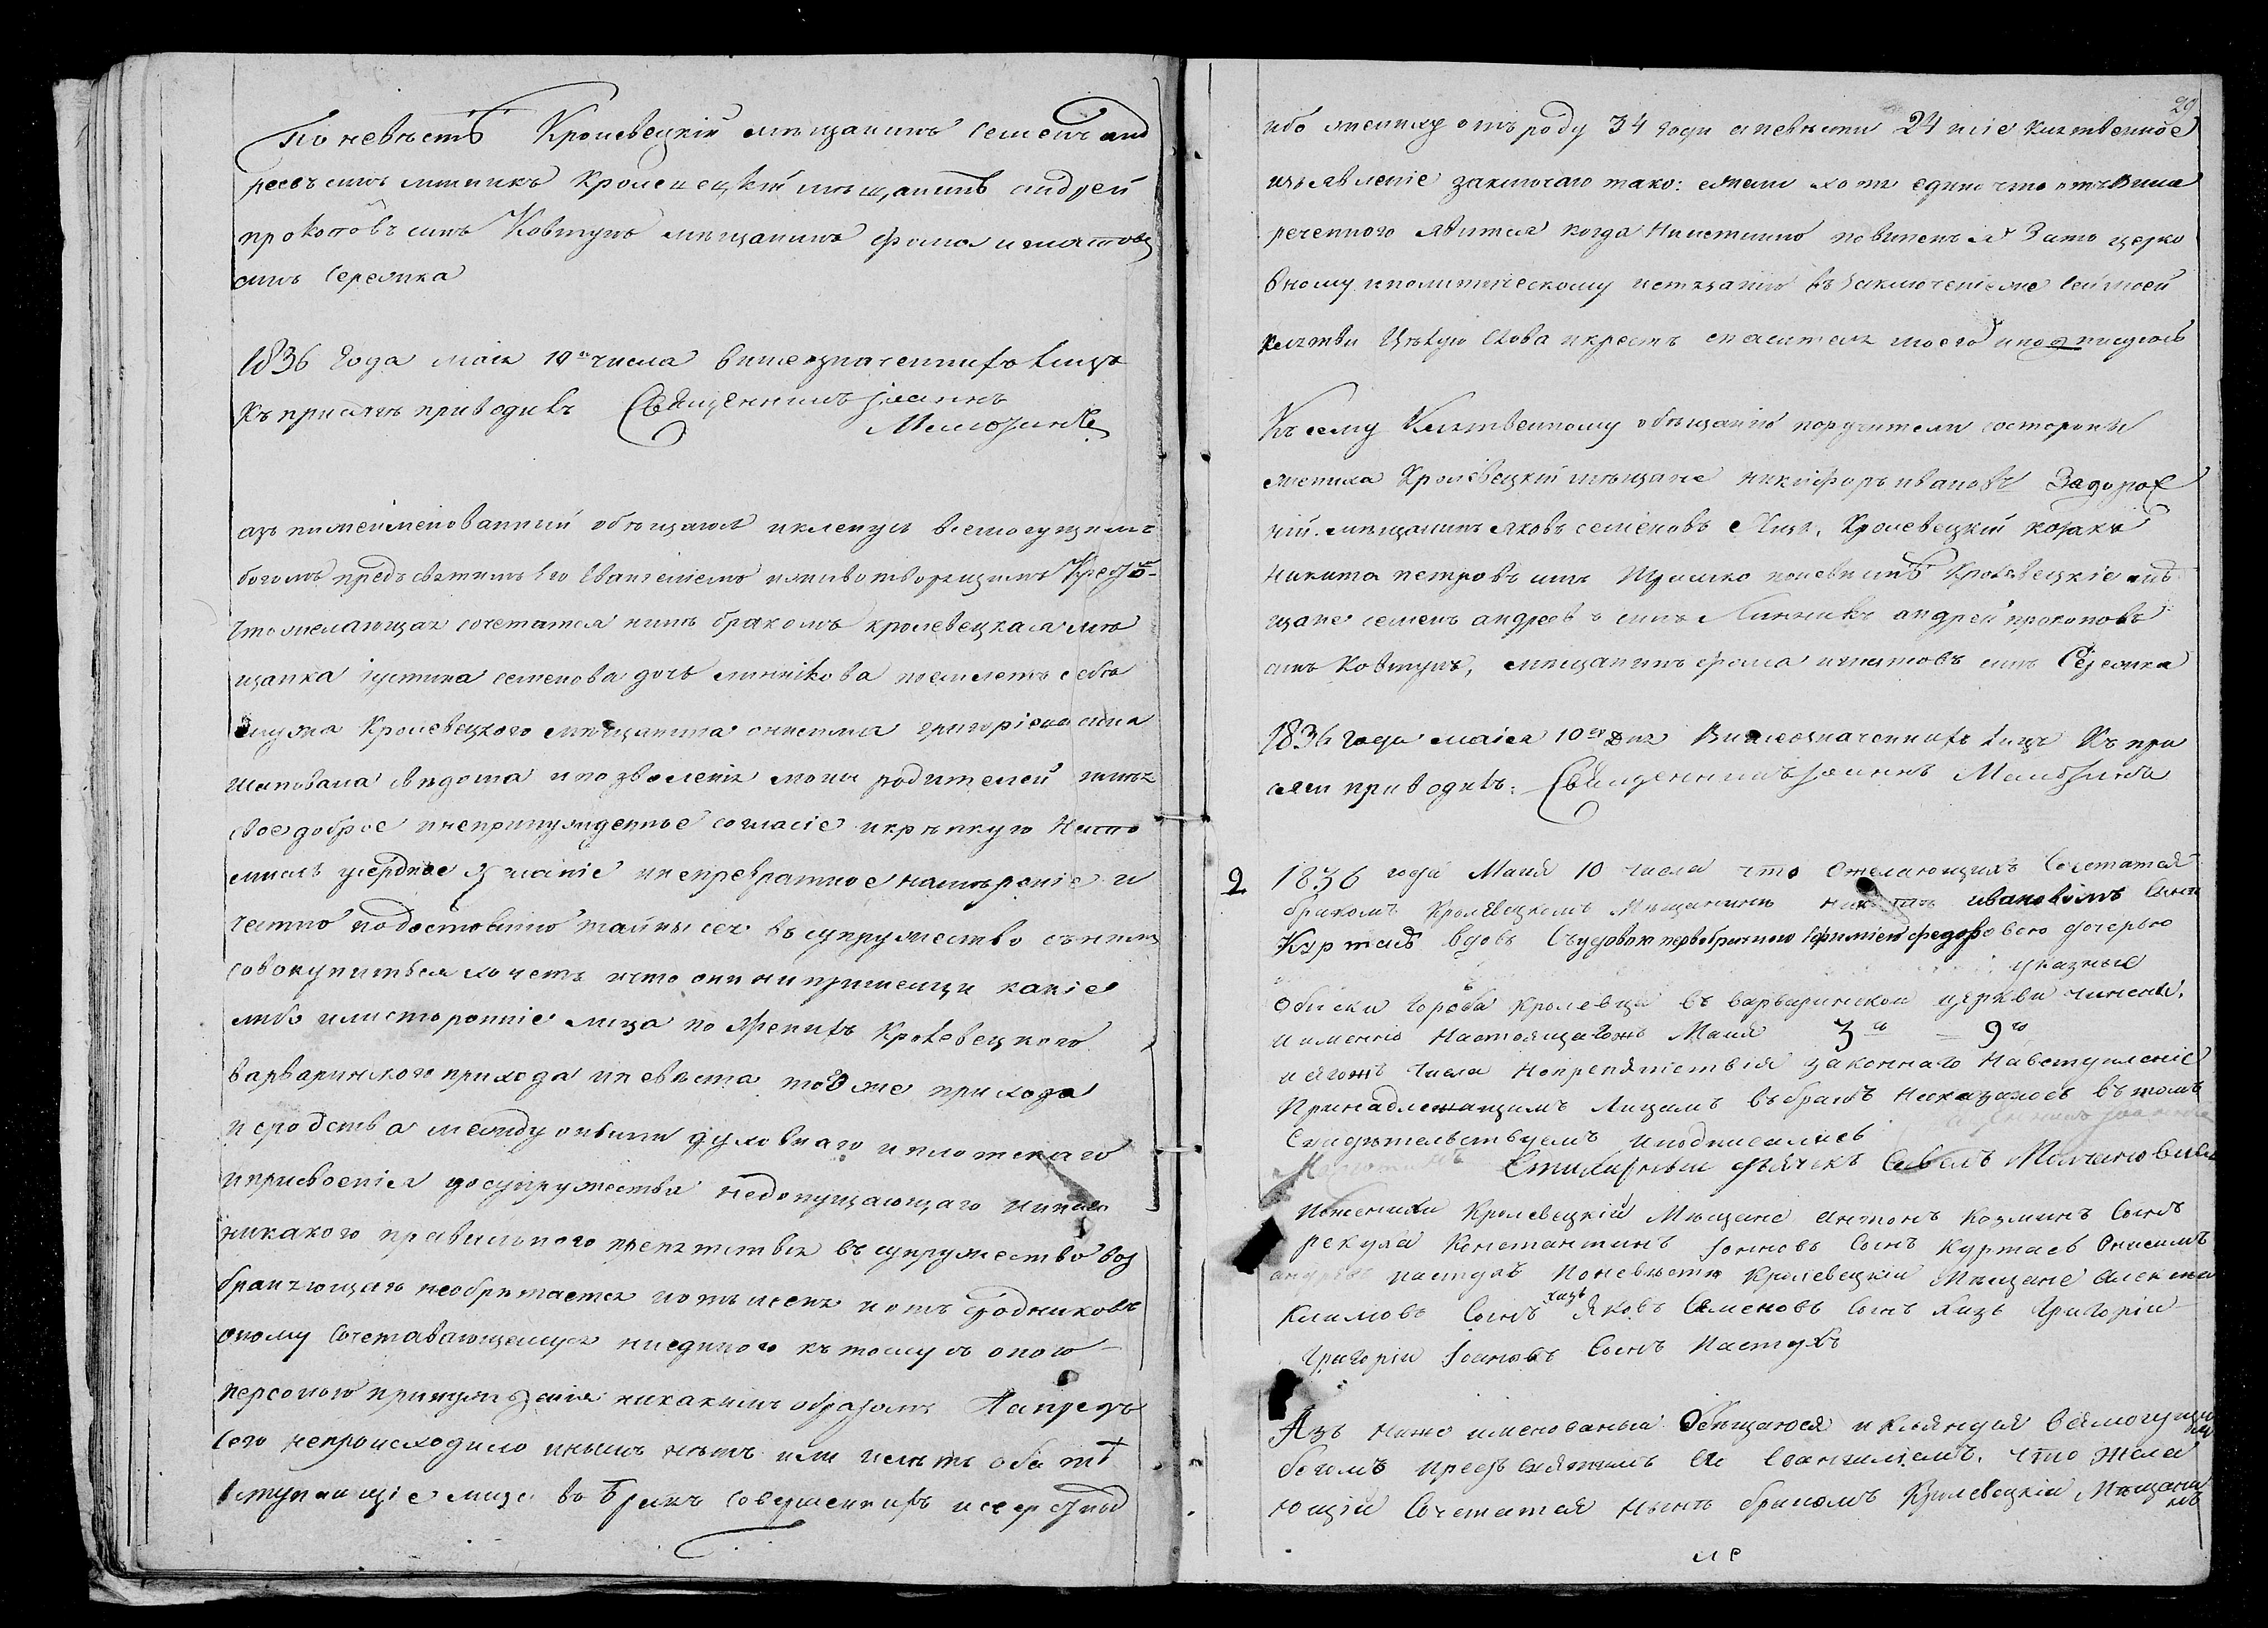 По невестѣ Кролевецкій мѣщанинъ Семенъ анд
реевъ синъ линникъ Кролевецкій мѣщанинъ андрей
прокоповъ синъ Ковтунъ мѣщанинъ фома игнатовъ
синъ Середика
1836 Года маія 10го числа вишеозначеннихъ лицъ
Къ присягѣ приводилъ Священникъ Іоаннъ
азъ нижейменованний обѣщаюся и кленуся всемогущимъ
богомъ предъ святимъ Его Евангеліемъ и животворящимъ Крестомъ
что желающая сочетатся нинѣ бракомъ кролевецкая мѣ
щанка іустина семенова дочь линникова поемлетъ себѣ
мужа Кролевецкого мѣщанина онисима григоріева сина
шаповала свѣдома и позволенія моих родителей имѣя
свое доброе и непринужденное согласіе и крѣпкую
мисль усердное желаніе и непревратное намѣреніе и
честно въ супружество съ нимъ
совокупиться хочетъ и что они ни пришелци какіе
либо или сторонніе лица но женихъ Кролевецкого
варваринского прихода и невѣста тоей же прихода
и сродства между оними духовнаго и плотскаго
и присвоенія до супружества недопущающаго
никакого правильного препятствія въ супружество воз
браняющаго необрѣтается и отъ сродниковъ
оному сочетавающемуся ни единого къ тому съ оною
персоною принужденія никакимъ образомъ Напредъ
сего непроисходило и нынѣ нѣтъ или оба тѣ
вступающіе лица въ бракъ совершеннихъ
29
ибо жениху отъ роду 34 годи а невѣсти 24 сіе клятвенное
изъявленіе заключаю тако: ежели хотя едино что отъ више
реченного явится когда неистинно повиненъ я зато церко
вному и политическому истязанію въ заключеніе же сей моей
клятви Цѣлую Слова и крестъ спасителя моего и подписуюсь
Къ сему Клятвенному обѣщанію поручители состороны
жениха Кролевецкій мѣщане никифоръ ивановъ Задорож
ній мѣщанинъ яковъ семеновъ Хиз. Кролевецкій козакъ
Никита петровъ синъ поневѣстѣ Кролевецкіе мѣ
щане семенъ андреевъ синъ Линникъ андрей прокоповъ
синъ Ковтунъ, мѣщанинъ фома игнатовъ синъ Середика
1836 года маія 10го дня Вишеозначеннихъ лицъ Къ при
сяги приводилъ: Священникъ Іоаннъ
2 1836 года Маия 10 числа что о желающихъ Сочетатся
бракомъ Кролевецкомъ Мещанинѣ ивановимъ Сыномъ
вдовѣ Съ вдовою первобрачною Ефиміею федоровою дочерью
указные
обиски города Кролевца въ варваринской церкви чинены,
и именно Настоящагожъ Маия 3го 9го
числа Непрепятствія законнаго Навступленіе
Принадлежащимъ Лицамъ въбракъ Неоказалось въ томъ
Свидѣтельствуемъ и подписались
Стихарный дьячекъ Савелъ
Поженихи Кролевецкій Мещане антонъ козминъ Сынъ
рекула Константинъ Іоановъ Сынъ Куртаевъ Онисимъ
пастухъ Поневѣсти Кролевецкіи Мещане алексей
Климовъ Сынъ хизъ Яковъ Семеновъ Сынъ Хизъ Григоріи
Григоріи Іоановъ Сынъ Пастухъ
Азъ ниже именованый Обѣщаюся и клянуся всемогущимъ
богомъ предъ святимъ Его Евангиліемъ, что жела
ющій Сочетатся нынѣ бракомъ Кролевецкій Мещани
нъ